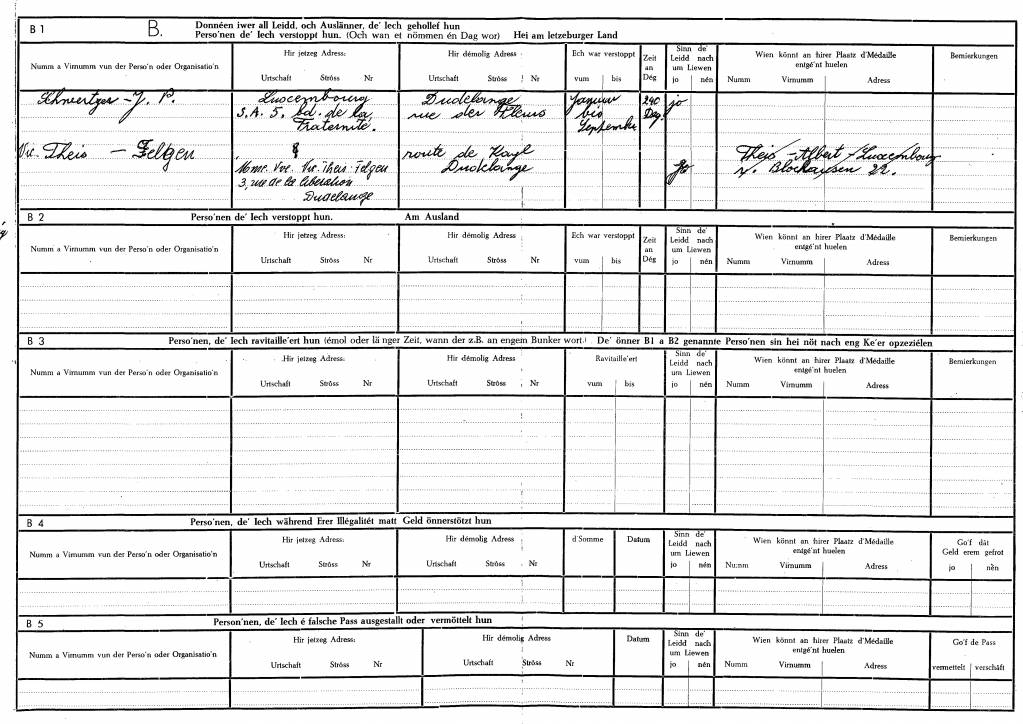 B 1 B. Donnéen iwer all Leidd, och Auslänner, de' Iech gehollef hun
Perso'nen de' Iech verstoppt hun. (Och wan et nömmen én Dag wor) Hei am letzeburger Land
Numm a Virnumm vun der Perso'n oder Organisatio'n
Hir jetzeg Adress:
Urtschaft Strôss Nr
Hir démolig Adress
Urtschaft Strôss Nr
Ech war verstoppt
vum bis
Zeit
an
Dég
Sinn de'
Leidd nach
um Liewen
jo nén
Wien könnt an hirer Plaatz d'Médaille
entgé'nt huelen
Numm Virnumm Adress
Bemierkungen
J. P.
Luxembourg
S.A. 5, bd. de la
Fraternité.
Dudelange
rue der
Januar
bis
September
240
Deg.
jo
Vve. Theis — Felgen
Mme. Vve. Vic. Theis-Felgen
3, rue de la libération
Dudelange
route de Kayl
Dudelange
jo
Theis - Albert - Luxembourg
r. Blochausen 22.
B 2 Perso'nen de' Iech verstoppt hun. Am Ausland
Numm a Virnumm vun der Perso'n oder Organisatio'n
Hir jetzeg Adress:
Urtschaft Strôss Nr
Hir démolig Adress:
Urtschaft Strôss Nr
Ech war verstoppt
vum bis
Zeit
an
Dég
Sinn de'
Leidd nach
um Liewen
jo nén
Wien könnt an hirer Plaatz d'Médaille
entgé'nt huelen
Numm Virnumm Adress
Bemierkungen
B 3 Perso'nen, de' Iech ravitaille'ert hun (émol oder länger Zeit, wann der z.B. an engem Bunker wort.) De' önner B1 a B2 genannte Perso'nen sin hei nöt nach eng Ke'er opzeziélen
Numm a Virnumm vun der Perso'n oder Organisatio'n
Hir jetzeg Adress:
Urtschaft Strôss Nr
Hir démolig Adress
Urtschaft Strôss Nr
Ravitaille'ert
vum bis
Sinn de'
Leidd nach
um Liewen
jo nén
Wien könnt an hirer Plaatz d'Médaille
entgé'nt huelen
Numm Virnumm Adress
Bemierkungen
B 4 Perso'nen, de' Iech während Erer Illégalitét matt Geld önnerstötzt hun
Numm a Virnumm vun der Perso'n oder Organisatio'n
Hir jetzeg Adress:
Urtschaft Strôss Nr
Hir démolig Adress:
Urtschaft Strôss Nr
d'Somme
Datum
Sinn de'
Leidd nach
um Liewen
jo nén
Wien könnt an hirer Plaatz d'Médaille
entgé'nt huelen
Numm Virnumm Adress
Go'f dât
Geld erem gefrot
jo nèn
B 5 Person'nen, de' Iech é falsche Pass ausgestallt oder vermöttelt hun
Numm a Virnumm vun der Perso'n oder Organisatio'n
Hir jetzeg Adress:
Urtschaft Strôss Nr
Hir démolig Adress:
Urtschaft Strôss Nr
Datum
Sinn de'
Leidd nach
um Liewen
jo nén
Wien könnt an hirer Plaatz d'Médaille
entgé'nt huelen
Numm Virnumm Adress
Go'f de Pass
vermettelt verschâft